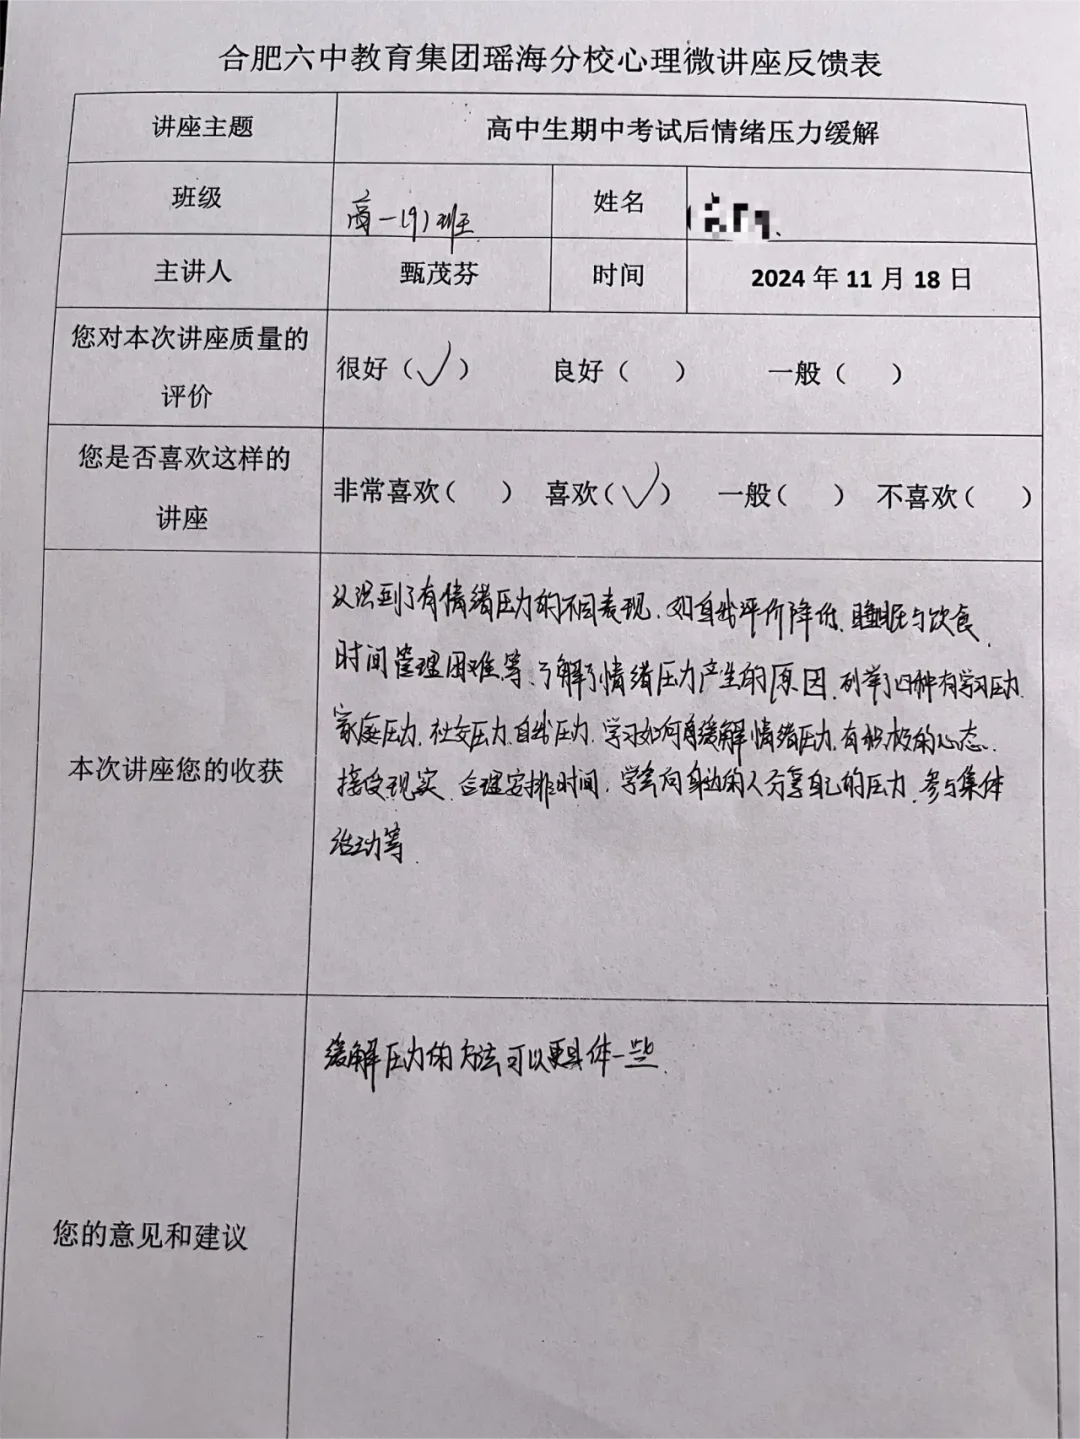 合肥六中教育集团瑶海分校心理微讲座反馈表
讲座主题 高中生期中考试后情绪压力缓解
班级 高一(9)班 姓名
主讲人 甄茂芬 时间 2024年11月18日
您对本次讲座质量的
评价
很好（✓） 良好（ ） 一般（ ）
您是否喜欢这样的
讲座
非常喜欢（ ） 喜欢（✓） 一般（ ） 不喜欢（ ）
本次讲座您的收获
认识到了有情绪压力的不同表现、如自我评价降低、睡眠与饮食、
时间管理困难等、了解了情绪压力产生的原因、列举了四种有学习压力、
家庭压力、社交压力、自我压力、学习如何缓解情绪压力、有积极的心态、
接受现实、合理安排时间、学会向身边的人分享自己的压力、参与集体
活动等.
您的意见和建议
缓解压力的方法可以更具体一些.